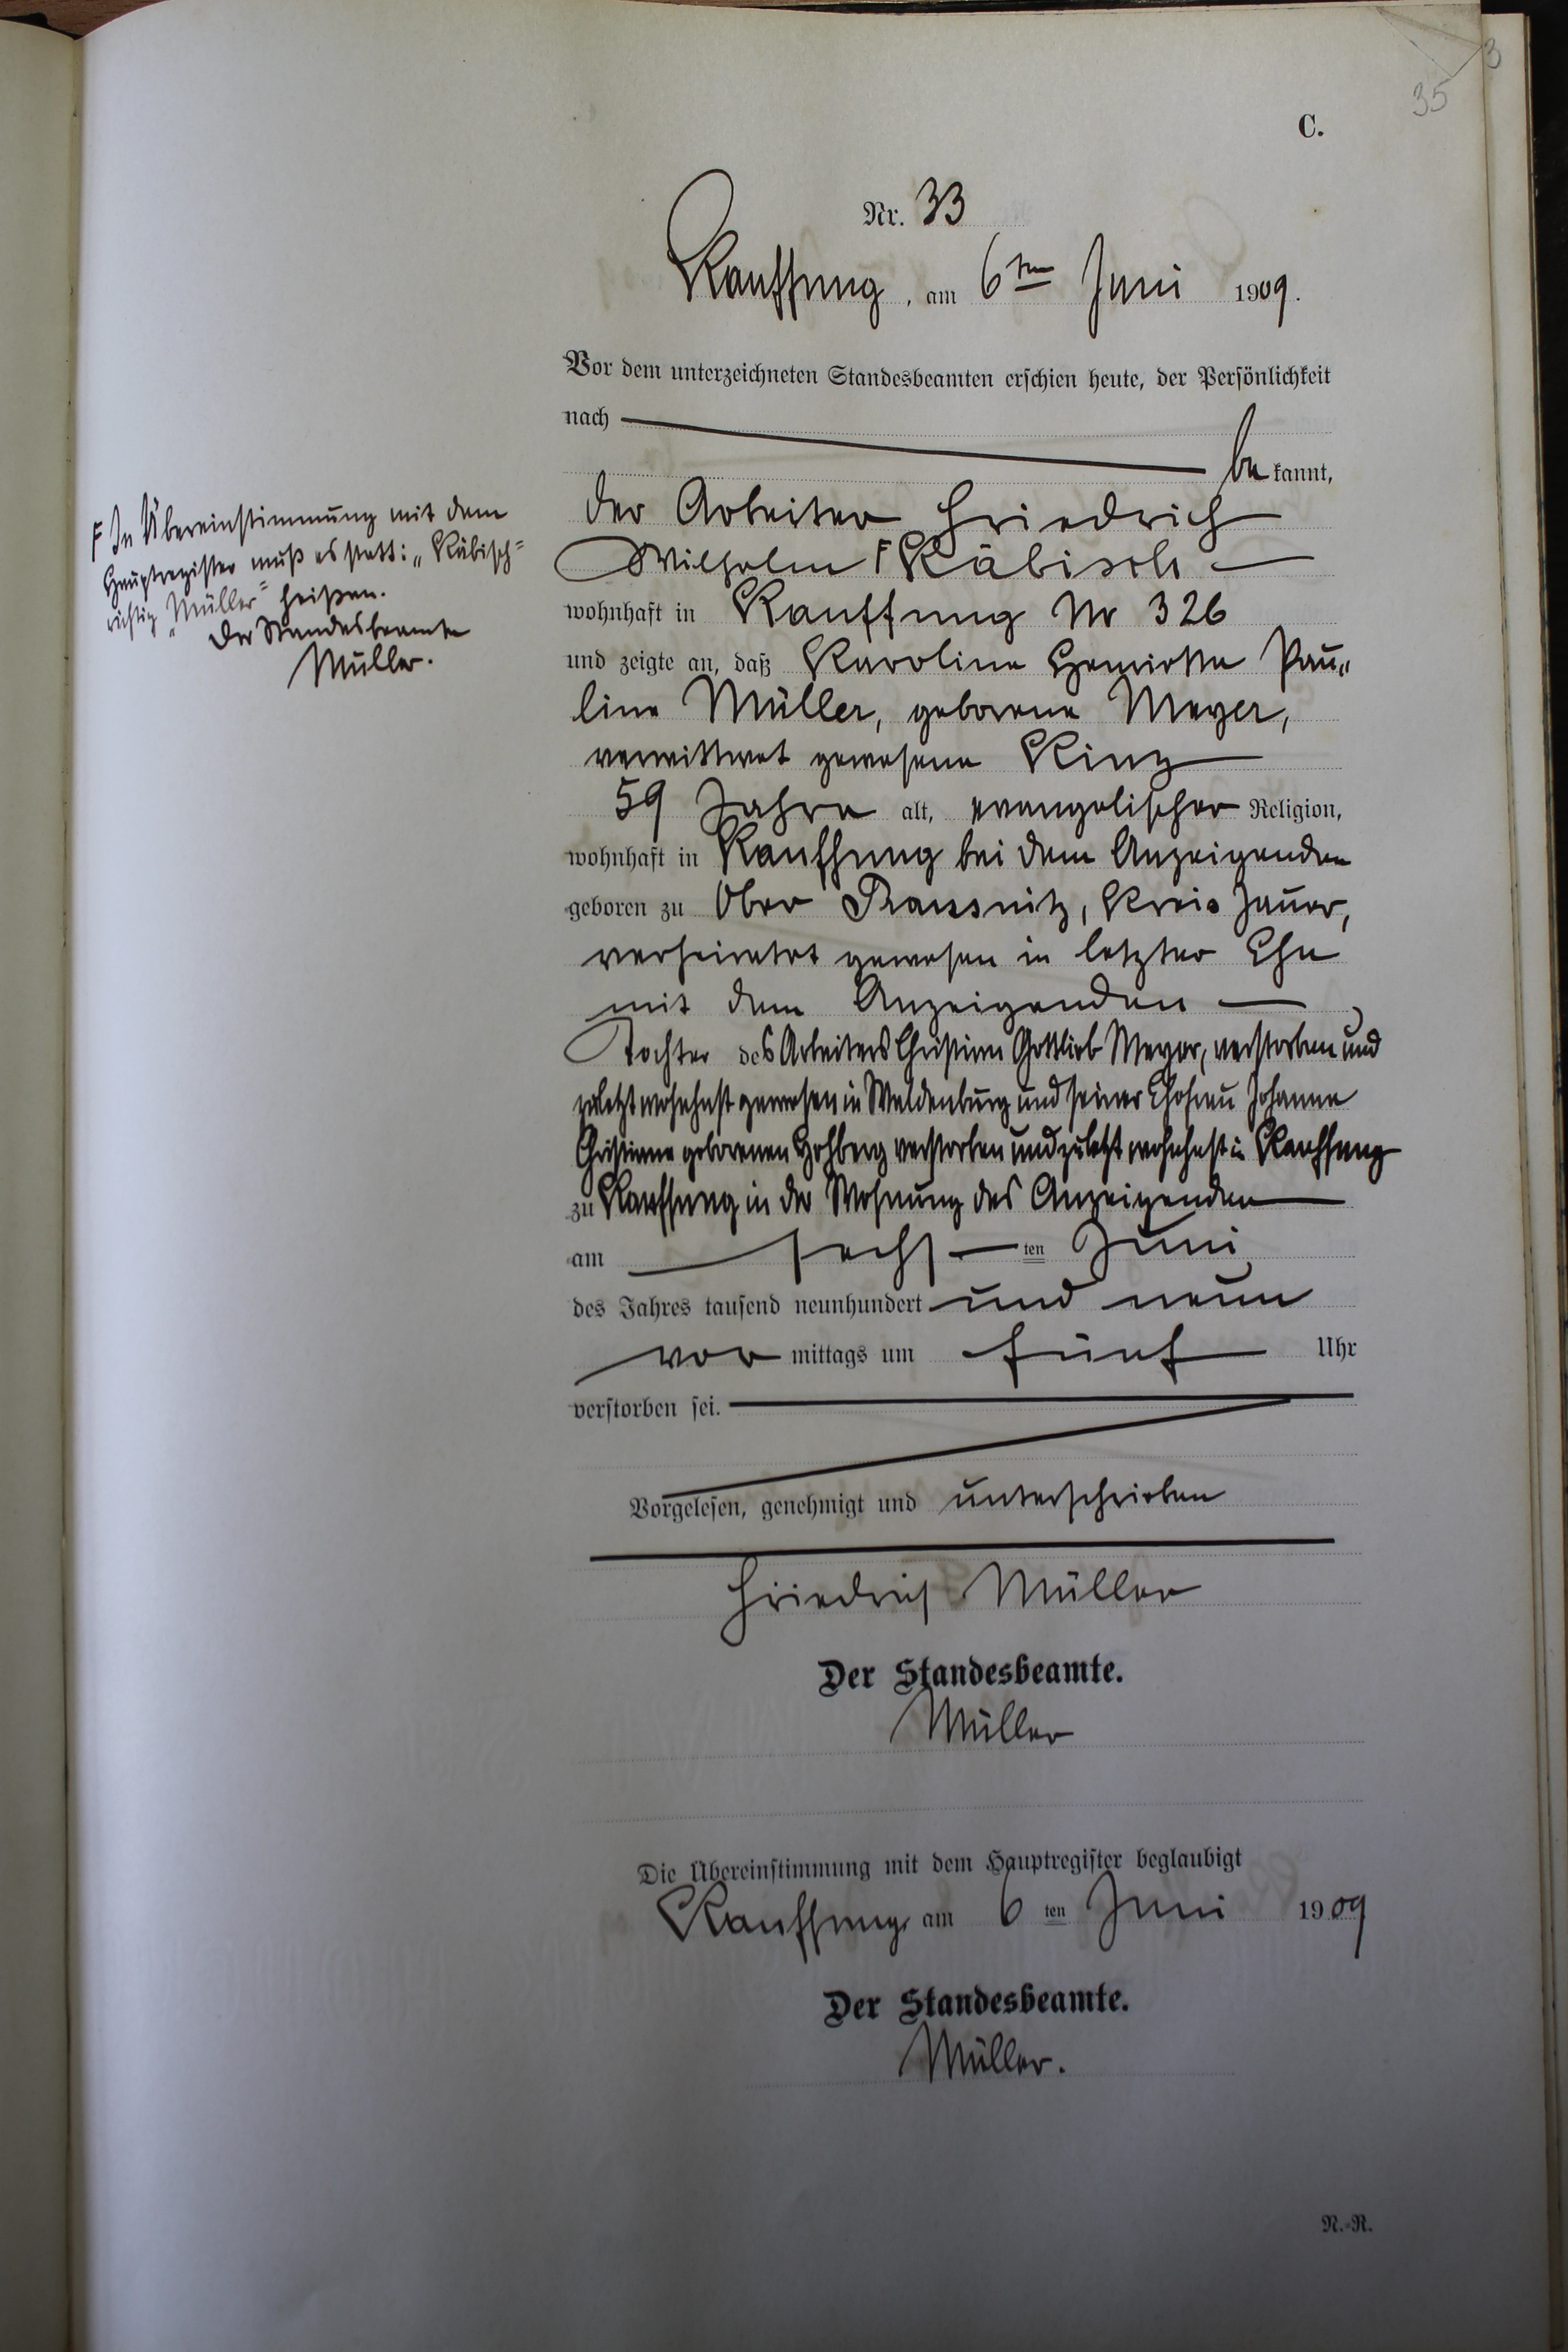 3
35
C.
Nr. 33
Kauffung, am 6ten Juni 1909.
Vor dem unterzeichneten Standesbeamten erschien heute, der Persönlichkeit
nach
bekannt,
der Arbeiter Friedrich
Wilhelm F Käbisch
F In Übereinstimmung mit dem
Hauptregister muß es statt: „Käbisch"
richtig „Müller" heißen.
Der Standesbeamte
Müller.
wohnhaft in Kauffung Nr 326
und zeigte an, daß Karoline Henriette Pau„
line Müller, geborene Meyer,
verwittwet gewesene Kinz
59 Jahre alt, evangelischer Religion,
wohnhaft in Kauffung bei dem Anzeigenden
geboren zu Ober Prausnitz, Kreis Jauer,
verheiratet gewesen in letzter Ehe
mit dem Anzeigenden
Tochter des Arbeiters Christian Gottlieb Meyer, verstorben und
zuletzt wohnhaft gewesen in Waldenburg und seiner Ehefrau Johanne
Christiane geborenen Hohberg verstorben und zuletzt wohnhaft in Kauffung
zu Kauffung in der Wohnung des Anzeigenden
am sechsten Juni
des Jahres tausend neunhundert und neun
vormittags um fünf Uhr
verstorben sei.
Vorgelesen, genehmigt und unterschrieben
Friedrich Müller
Der Standesbeamte.
Müller
Die Übereinstimmung mit dem Hauptregister beglaubigt
Kauffung, am 6ten Juni 1909
Der Standesbeamte.
Müller.
N.-R.